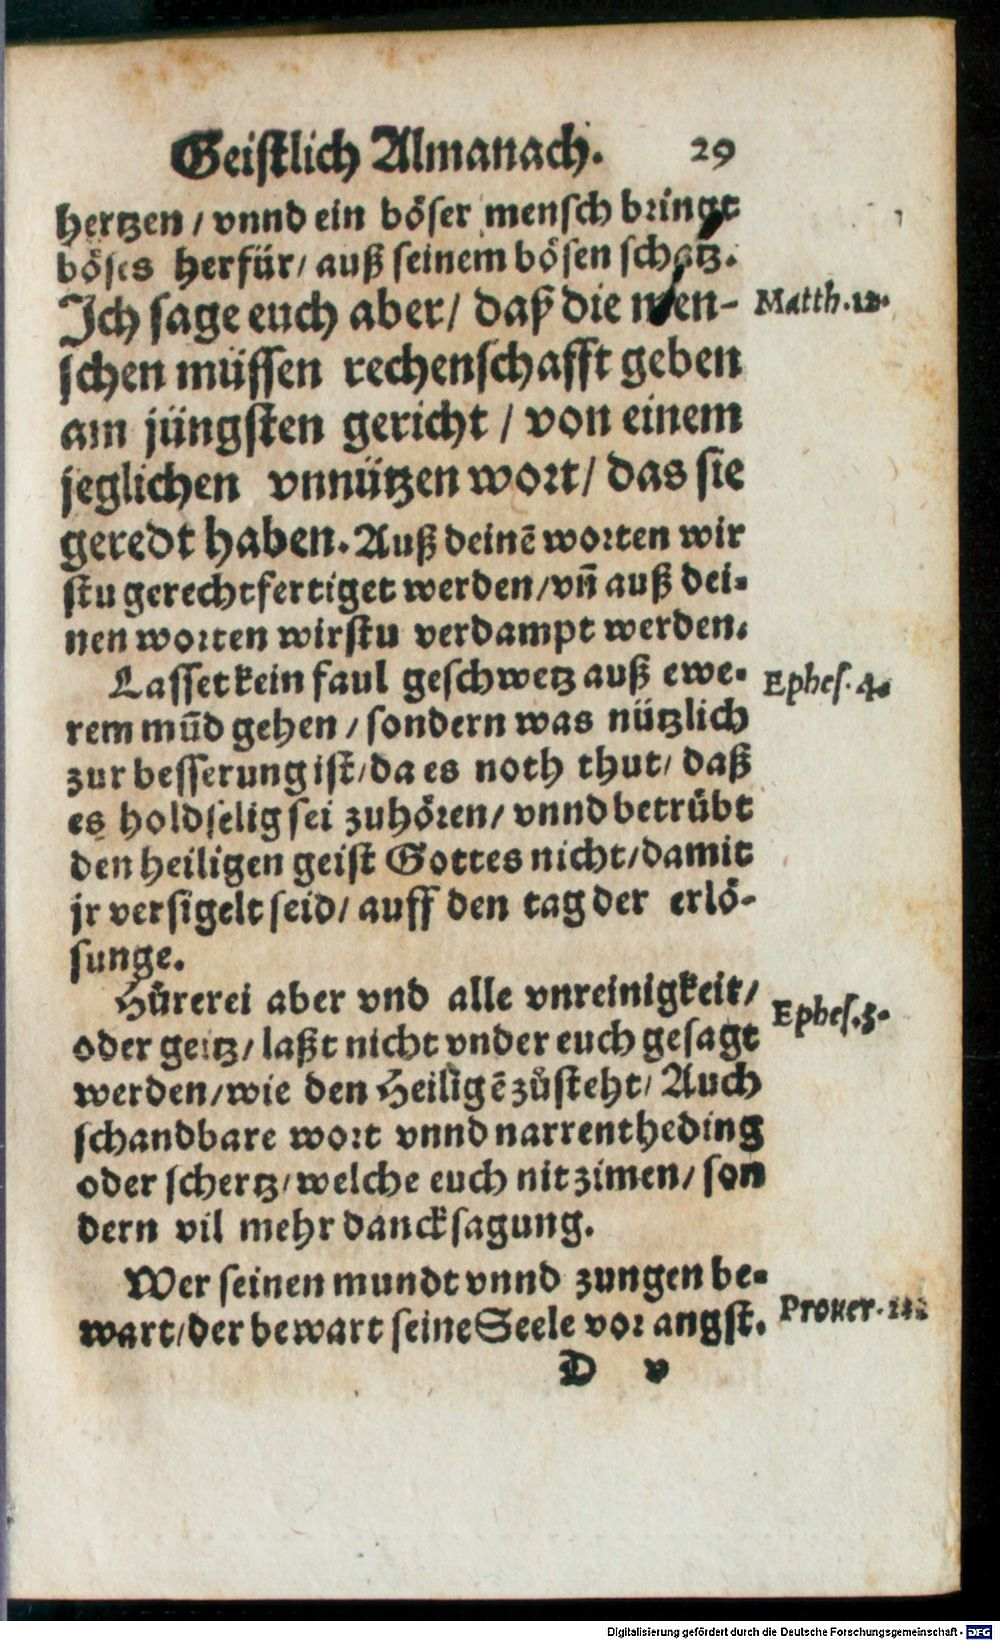 Geistlich Almanach. 29
hertzen / vnnd ein böser mensch bringt
böses herfür / auß seinem bösen schatz.
Ich sage euch aber / daß die men- Matth. 12.
schen müssen rechenschafft geben
am jüngsten gericht / von einem
jeglichen vnnützen wort / das sie
geredt haben. Auß deinē worten wir
stu gerechtfertiget werden / vñ auß dei-
nen worten wirstu verdampt werden.
Lasset kein faul geschwetz auß ewe- Ephes. 4.
rem mūd gehen / sondern was nützlich
zur besserung ist / da es noth thut / daß
es holdselig sei zuhören / vnnd betrübt
den heiligen geist Gottes nicht / damit
jr versigelt seid / auff den tag der erlö-
sunge.
Hůrerei aber vnd alle vnreinigkeit / Ephes. 5.
oder geitz / laßt nicht vnder euch gesagt
werden / wie den Heiligē zůsteht / Auch
schandbare wort vnnd narrentheding
oder schertz / welche euch nit zimen / son
dern vil mehr dancksagung.
Wer seinen mundt vnnd zungen be-
wart / der bewart seine Seele vor angst. Prouer.
D v
Digitalisierung gefördert durch die Deutsche Forschungsgemeinschaft - DFG